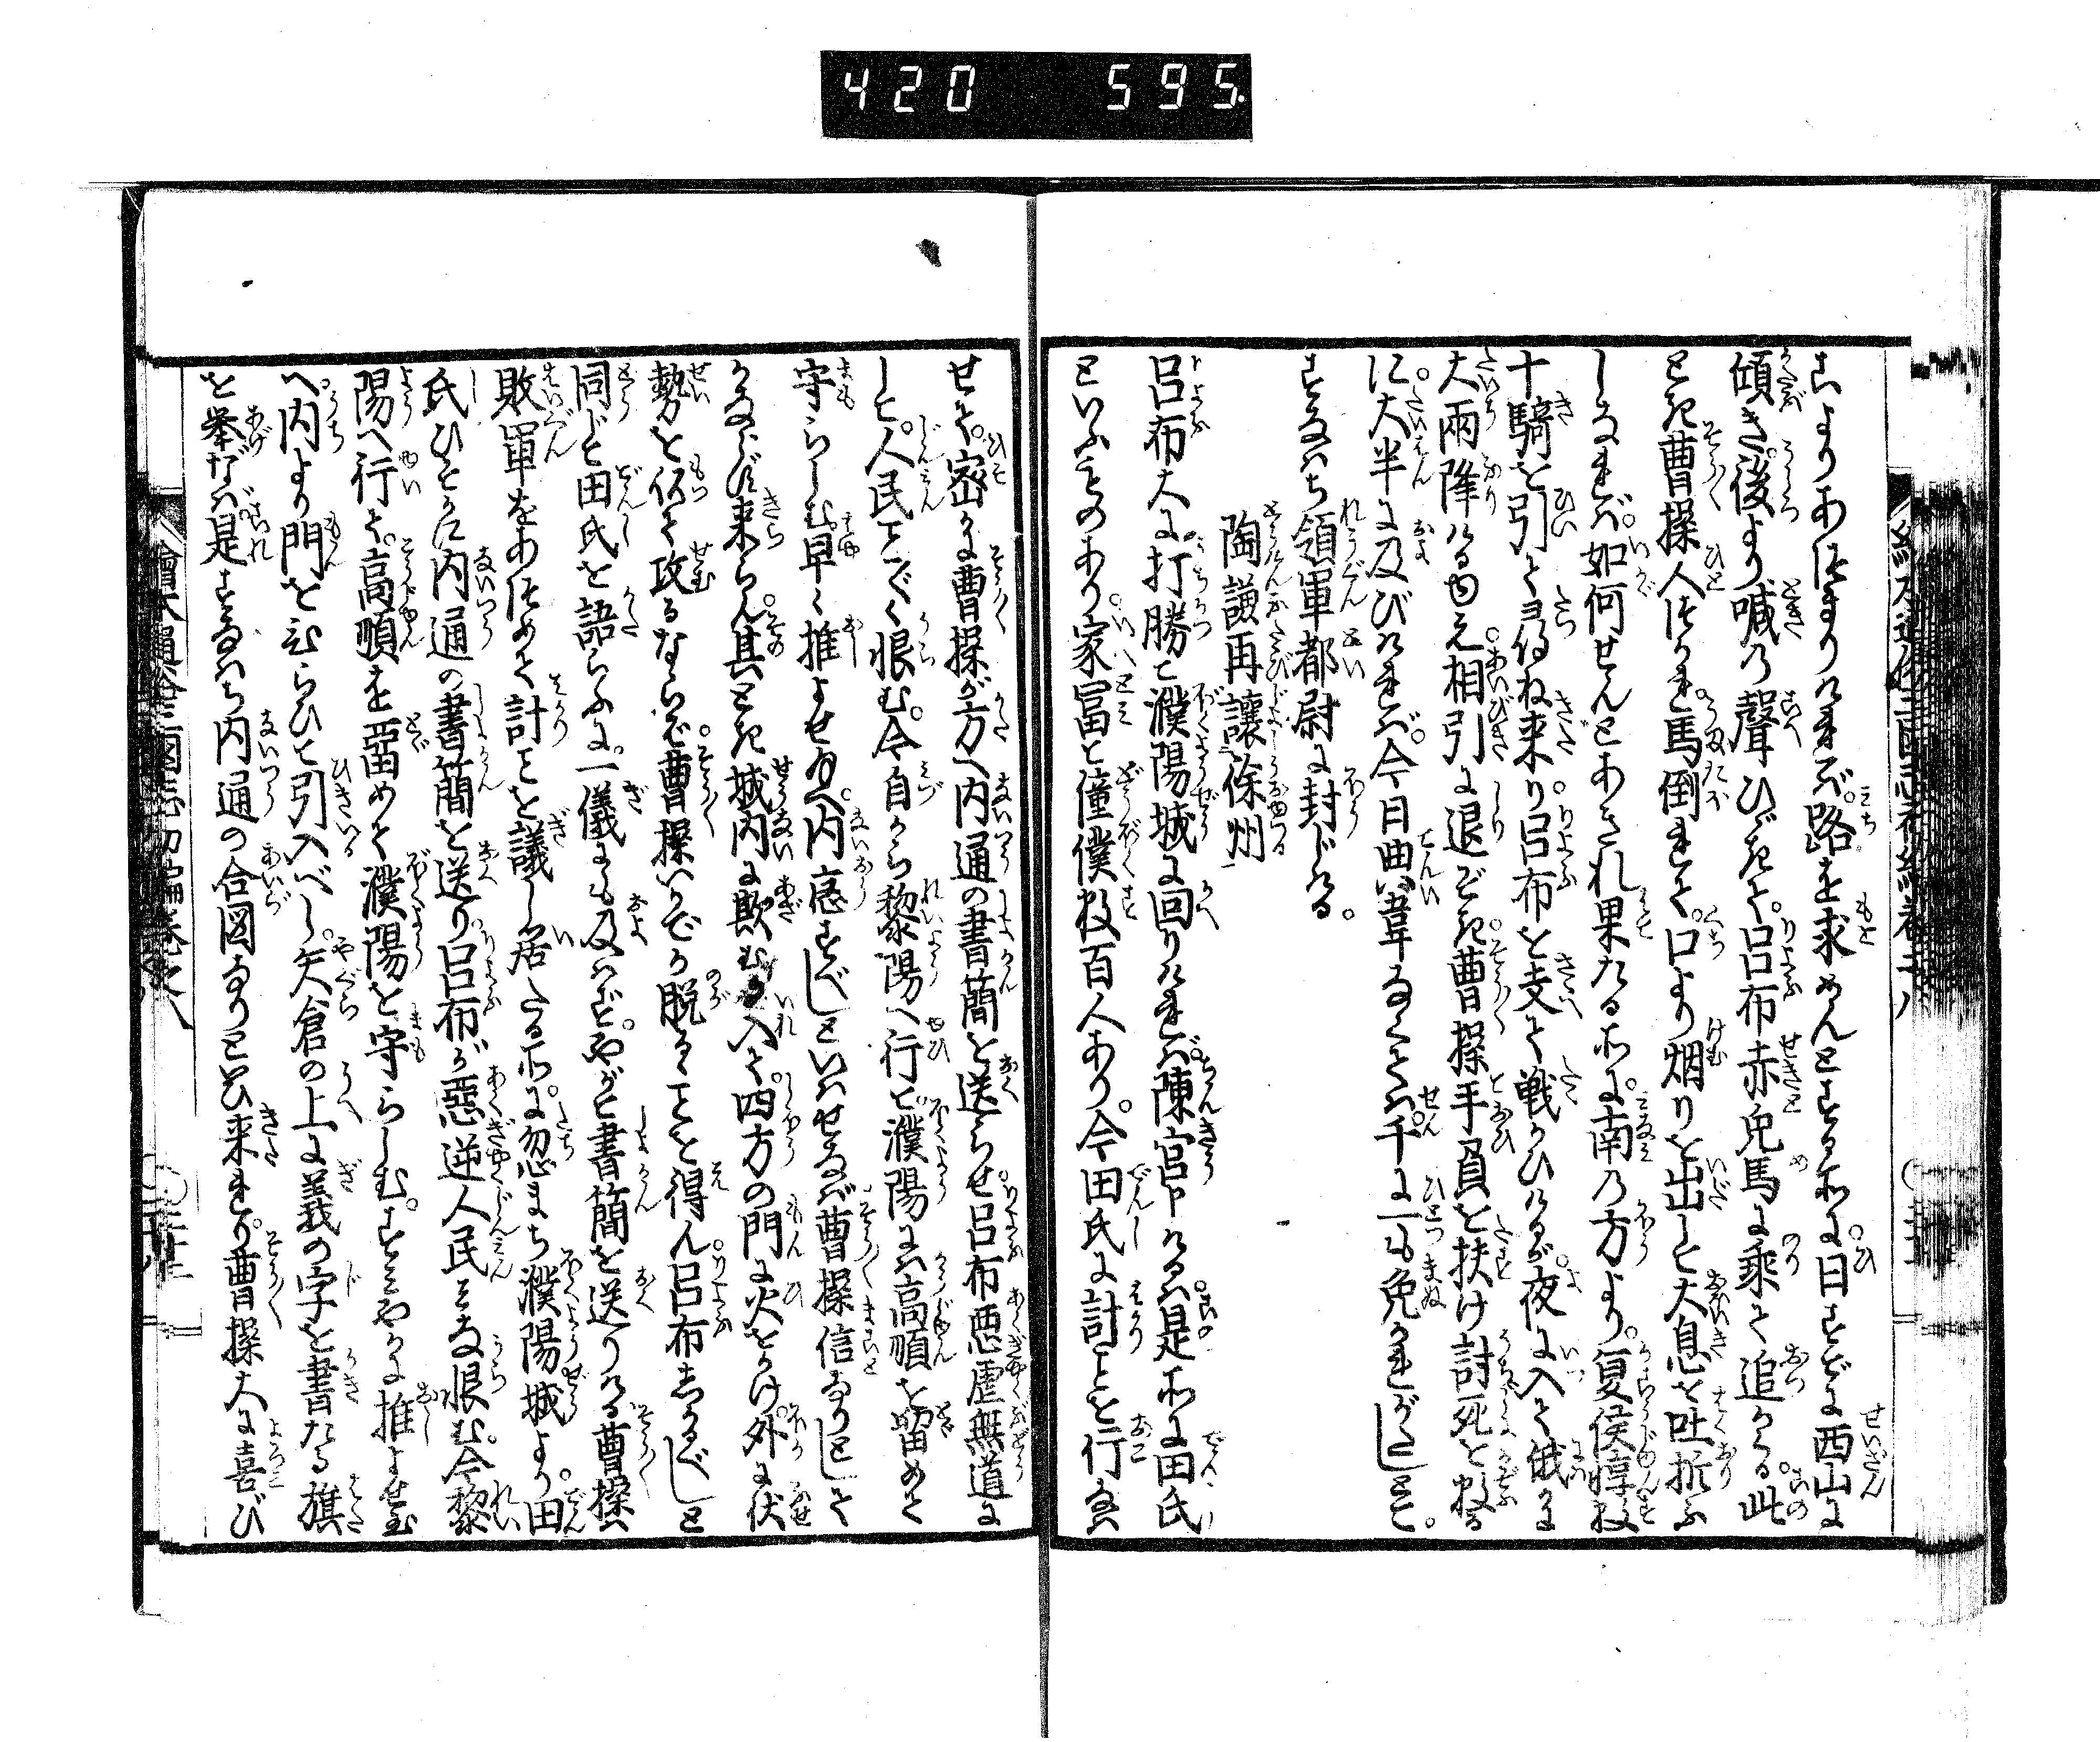 420 595
こよりあつまりければ。路を求めんとする所に。日すでに西山に
傾き。後より喊の聲ひゞきて。呂布赤兎馬に乗て追かくる。此
とき曹操人つかれ馬倒れて。口より烟りを出して大息を吐折ふ
しなれば。如何せんとあきれ果たる所に。南の方より。夏侯惇数
十騎を引て尋ね来り。呂布を支て戦かひけるが。夜に入て俄に
大雨降けるゆゑ。相引に退ぞき。曹操手負を扶け討死を数る
に。大半に及びければ。今日典韋なくんば。千に一も免かれがたしとて。
すなはち領軍都尉に封じける。
陶謙再讓徐州
呂布大に。打勝て濮陽城に回りければ。陳宮申けるは。是所に田氏
といふものあり。家冨て僮僕数百人あり。今田氏に討ことを行なは
せて。密に曹操が方へ内通の書簡を送らせ。呂布悪虐無道に
して。人民こと〴〵く恨む。今自から黎陽へ行て。濮陽には高順を留めて
守らしむ。早く推よせ給へ。内應すべしといはせなば。曹操信なりとして
かならず来らん。其とき城内に欺むき入て。四方の門に火をかけ。外に伏
勢を伏て攻るならば。曹操いかでか脱るゝことを得ん。呂布しかるべしと
同じて田氏を語らふに。一儀にも及はず。やがて書簡を送りける。曹操は
敗軍をあつめて計ことを議し居たる所に。忽まち濮陽城より。田
氏ひそかに内通の書簡を送り。呂布が惡逆人民みな恨む。今黎
陽へ行て。高順を畱めて濮陽を守らしむ。すみやかに推よせ玉
へ。内より門をひらひて引入べし。矢倉の上に義の字を書たる旗
を挙ば。是すなはち内通の合図なりといひ来れり。曹操大に喜び
繪本通俗三國志初編巻之八